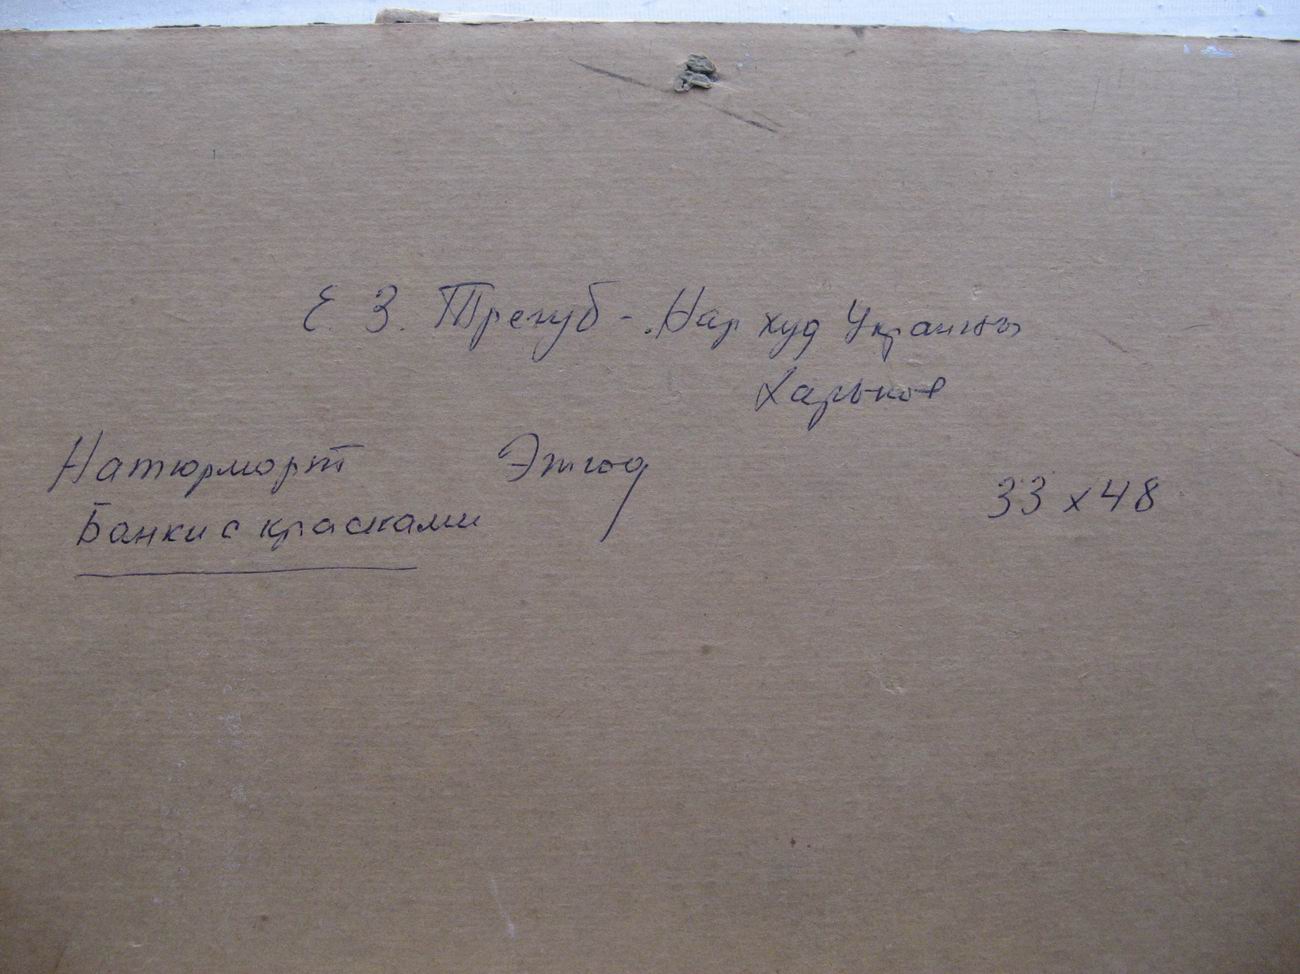 Е. З. Трегуб - Нар худ Украины
Харьков
Натюрморт Этюд
Банки с красками
33 х 48